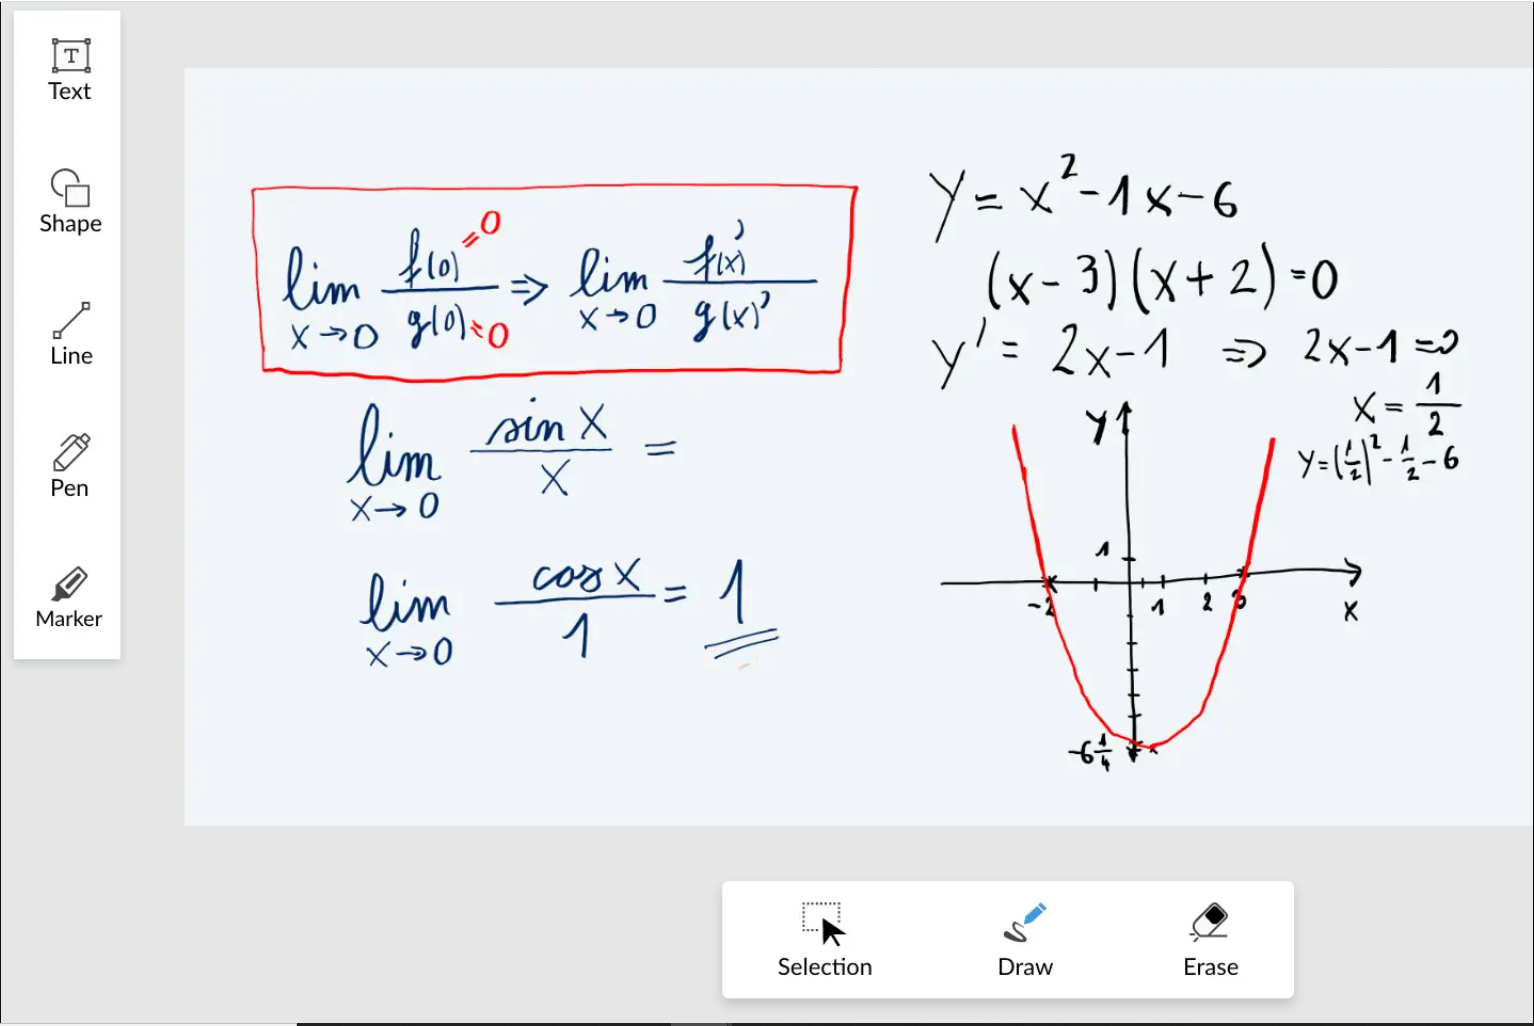 Text
Shape
Line
Pen
Marker
lim x→0 f(0)=0 / g(0)=0 ⇒ lim x→0 f(x)' / g(x)'
lim x→0 sin x / x =
lim x→0 cos x / 1 = 1
y = x² - 1x - 6
(x - 3)(x + 2) = 0
y' = 2x - 1 ⇒ 2x - 1 = 0
x = 1/2
y = (1/2)² - 1/2 - 6
y
1
-2 1 2 3
x
-6 1/4
Selection Draw Erase